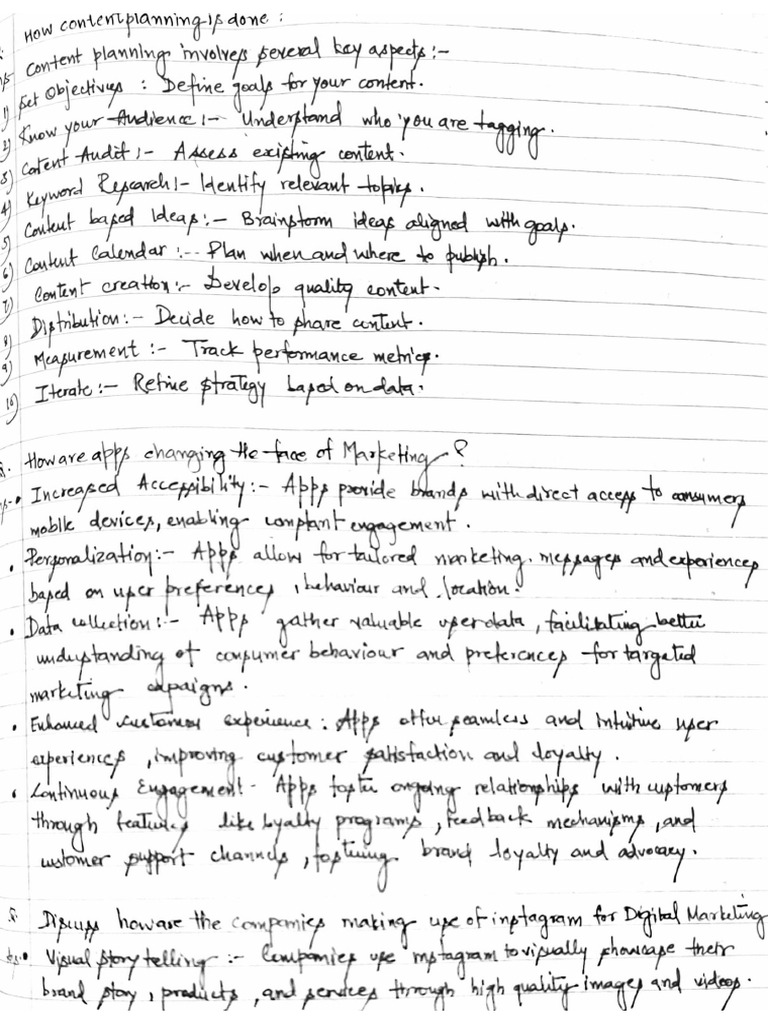 How content planning is done :
Content planning involves several key aspects :-
1) Set Objectives : Define goals for your content.
2) Know your Audience :- Understand who you are tagging.
3) Cotent Audit :- Assess existing content.
4) Keyword Research :- Identify relevant topics.
5) Content based Ideas :- Brainstorm ideas aligned with goals.
6) Content Calendar :-- Plan when and where to publish.
7) Content creation :- Develop quality content.
8) Distribution :- Decide how to share content.
9) Measurement :- Track performance metrics.
10) Iterate :- Refine strategy based on data.
How are apps changing the face of Marketing ?
• Increased Accessibility :- Apps provide brands with direct access to consumers
mobile devices, enabling constant engagement.
• Personalization :- Apps allow for tailored marketing messages and experiences
based on user preferences, behaviour and location.
• Data collection :- Apps gather valuable user data, facilitating better
understanding of consumer behaviour and preferences for targeted
marketing campaigns.
• Enhanced customer experience : Apps offer seamless and intuitive user
experiences, improving customer satisfaction and loyalty.
• Continuous Engagement - Apps foster ongoing relationships with customers
through features like loyalty programs, feedback mechanisms, and
customer support channels, fostering brand loyalty and advocacy.
Discuss how are the companies making use of instagram for Digital Marketing
• Visual Story telling :- Companies use instagram to visually showcase their
brand story, products, and services through high quality images and videos.